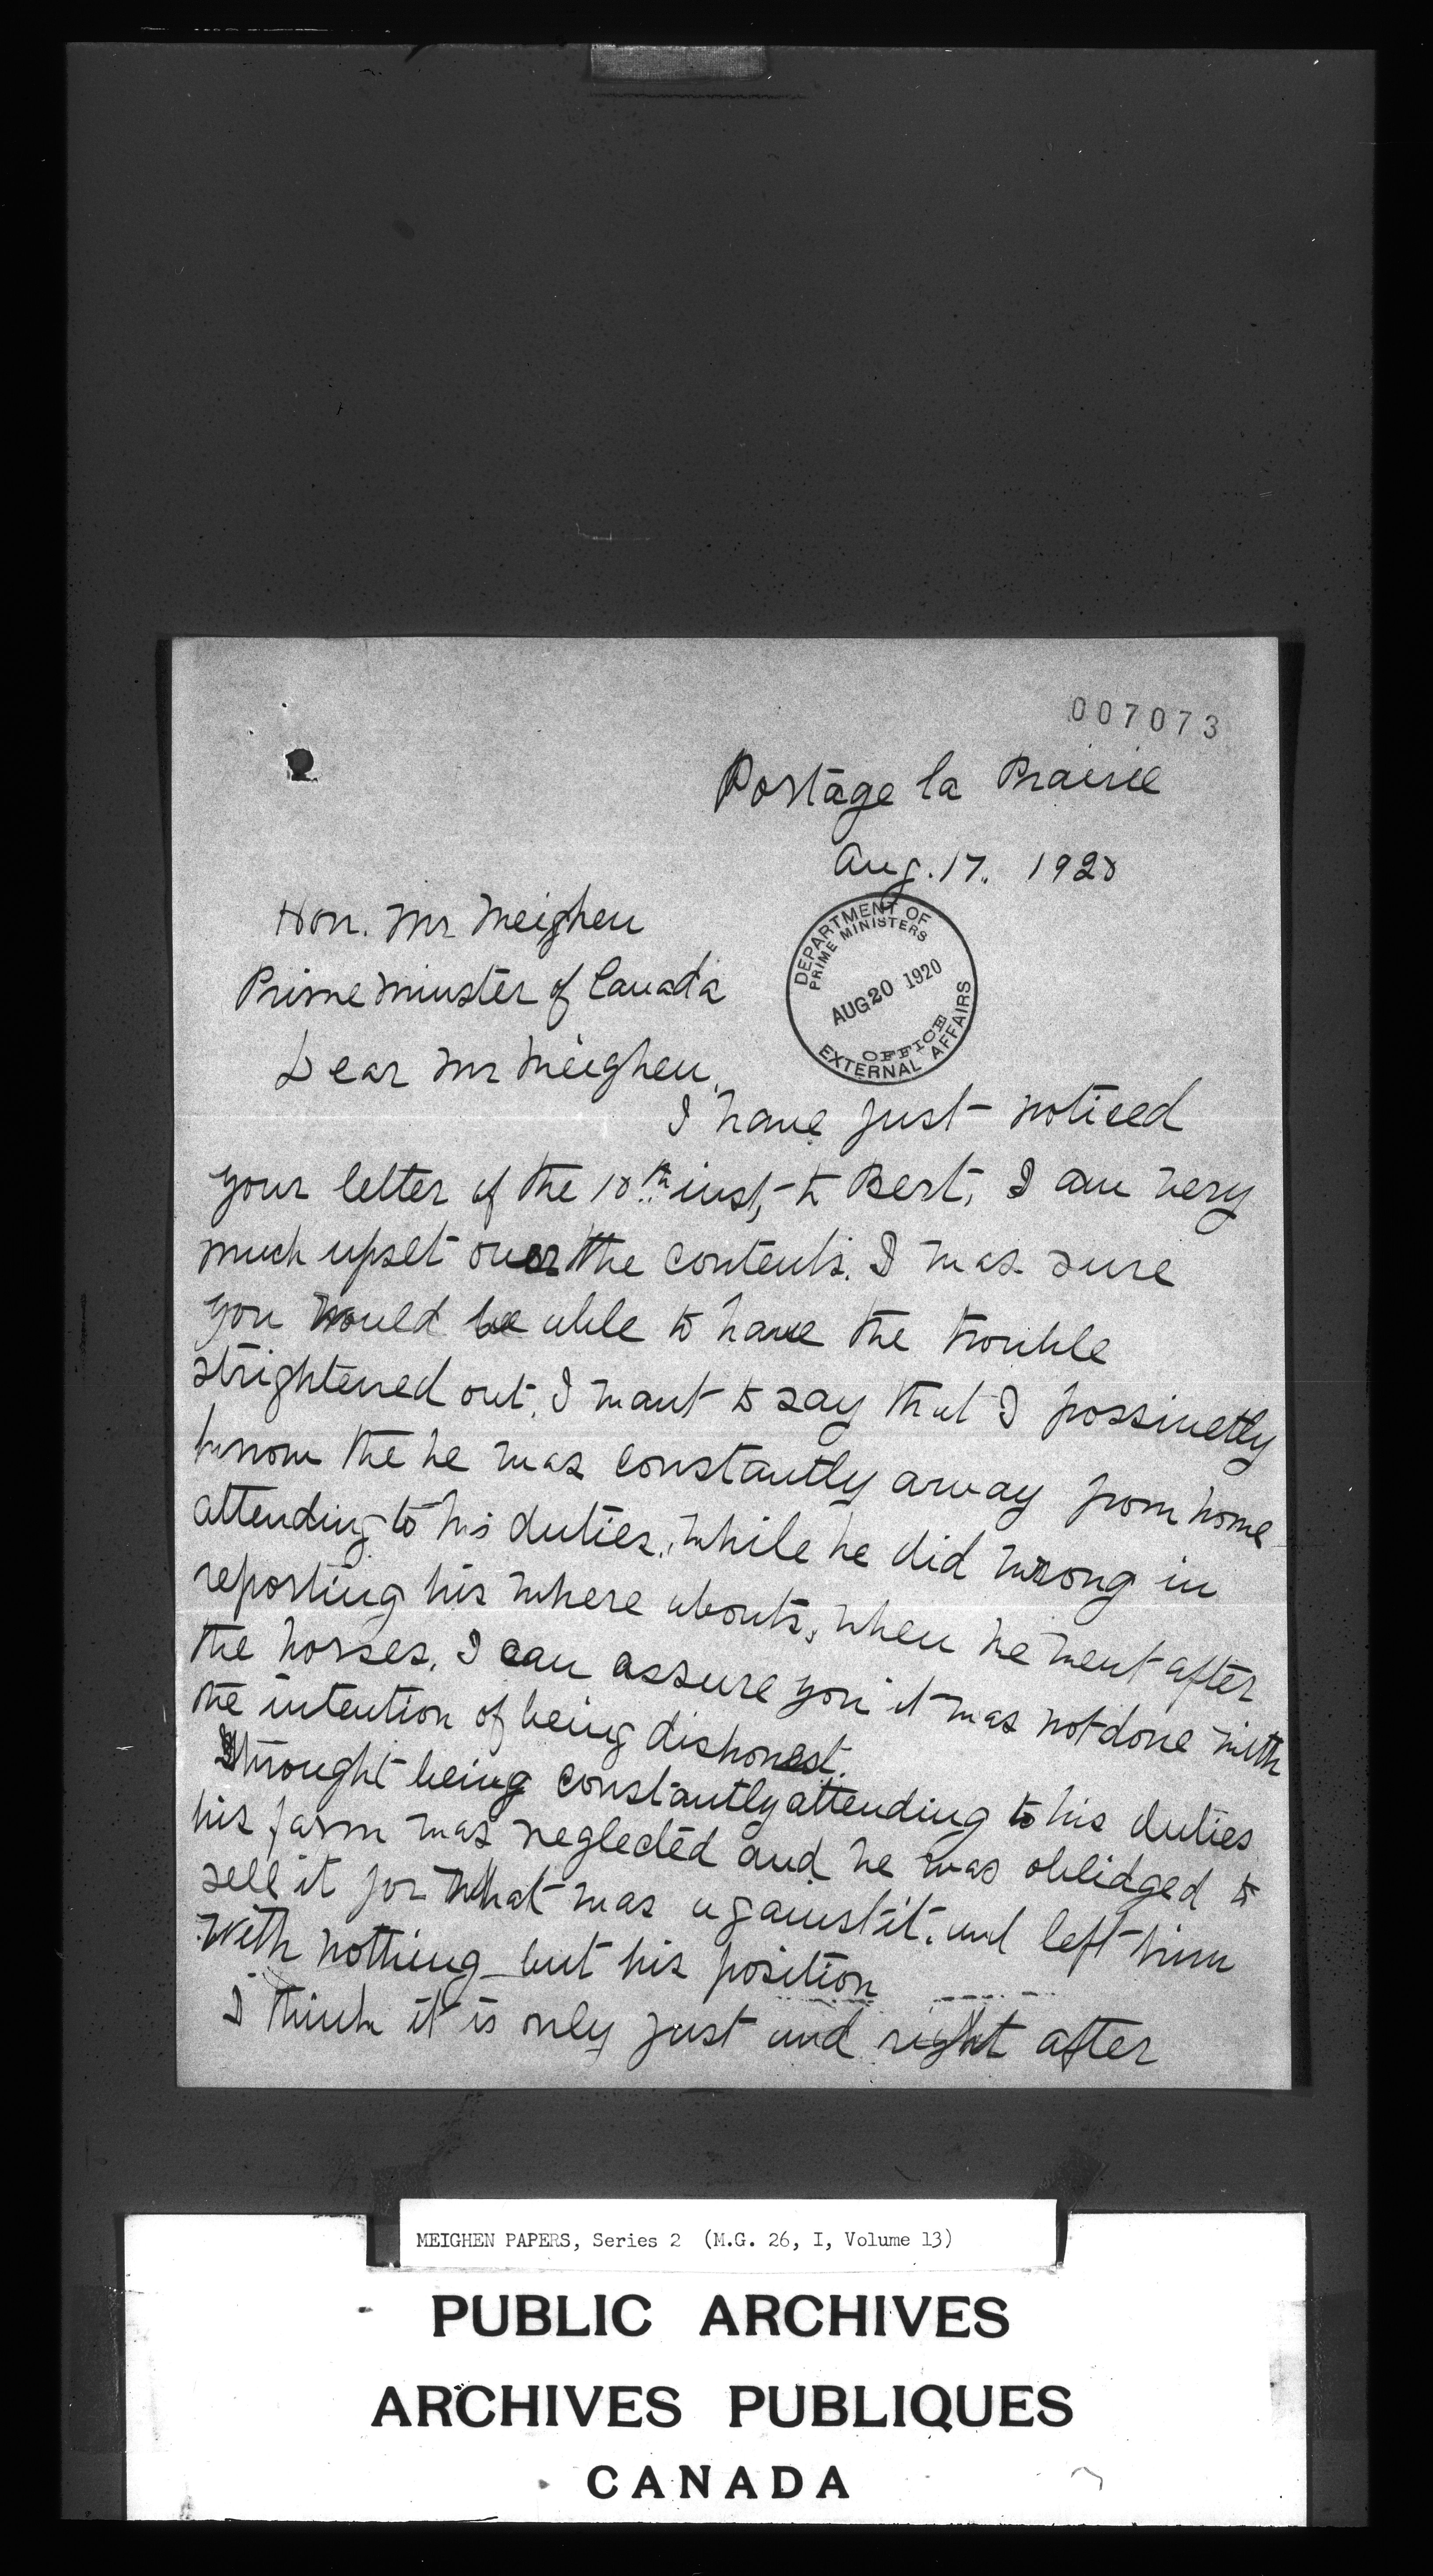 007073
Portage la Prairie
Aug. 17. 1920
Hon. Mr Meighen
Prime minister of Canada
DEPARTMENT OF
PRIME MINISTERS
AUG 20 1920
OFFICE
EXTERNAL AFFAIRS
Dear Mr Meighen.
I have just noticed
your letter of the 10th inst, to Bert, I am very
much upset over the contents. I was sure
you would be able to have the trouble
strightened out. I want to say that I possivetly
know the he was constantly away from home
attending to his duties, while he did wrong in
reporting his where abouts, when he went after
the horses, I can assure you it was not done with
the intention of being dishonest.
Throught being constantly attending to his duties
his farm was neglected and he was oblidged to
sell it for what was against it. and left him
with nothing but his position
I think it is only just and right after
MEIGHEN PAPERS, Series 2 (M.G. 26, I, Volume 13)
PUBLIC ARCHIVES
ARCHIVES PUBLIQUES
CANADA